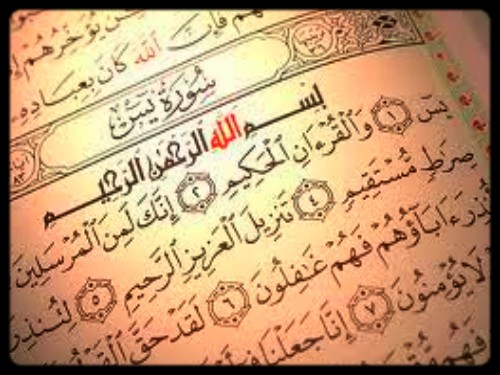 يُؤَخِّرُهُمْ
فَإِنَّ ٱللَّهَ كَانَ بِعِبَادِهِ
سُورَةُ يسٓ
بِسْمِ ٱللَّهِ ٱلرَّحْمَٰنِ ٱلرَّحِيمِ
يسٓ ١ وَٱلْقُرْءَانِ ٱلْحَكِيمِ ٢ إِنَّكَ لَمِنَ ٱلْمُرْسَلِينَ
صِرَٰطٍ مُّسْتَقِيمٍ ٤ تَنزِيلَ ٱلْعَزِيزِ ٱلرَّحِيمِ ٥ لِتُنذِرَ
ءَابَآؤُهُمْ فَهُمْ غَٰفِلُونَ ٦ لَقَدْ حَقَّ ٱلْقَوْلُ
لَا يُؤْمِنُونَ ٧ إِنَّا جَعَلْنَا فِيٓ
فَهُم